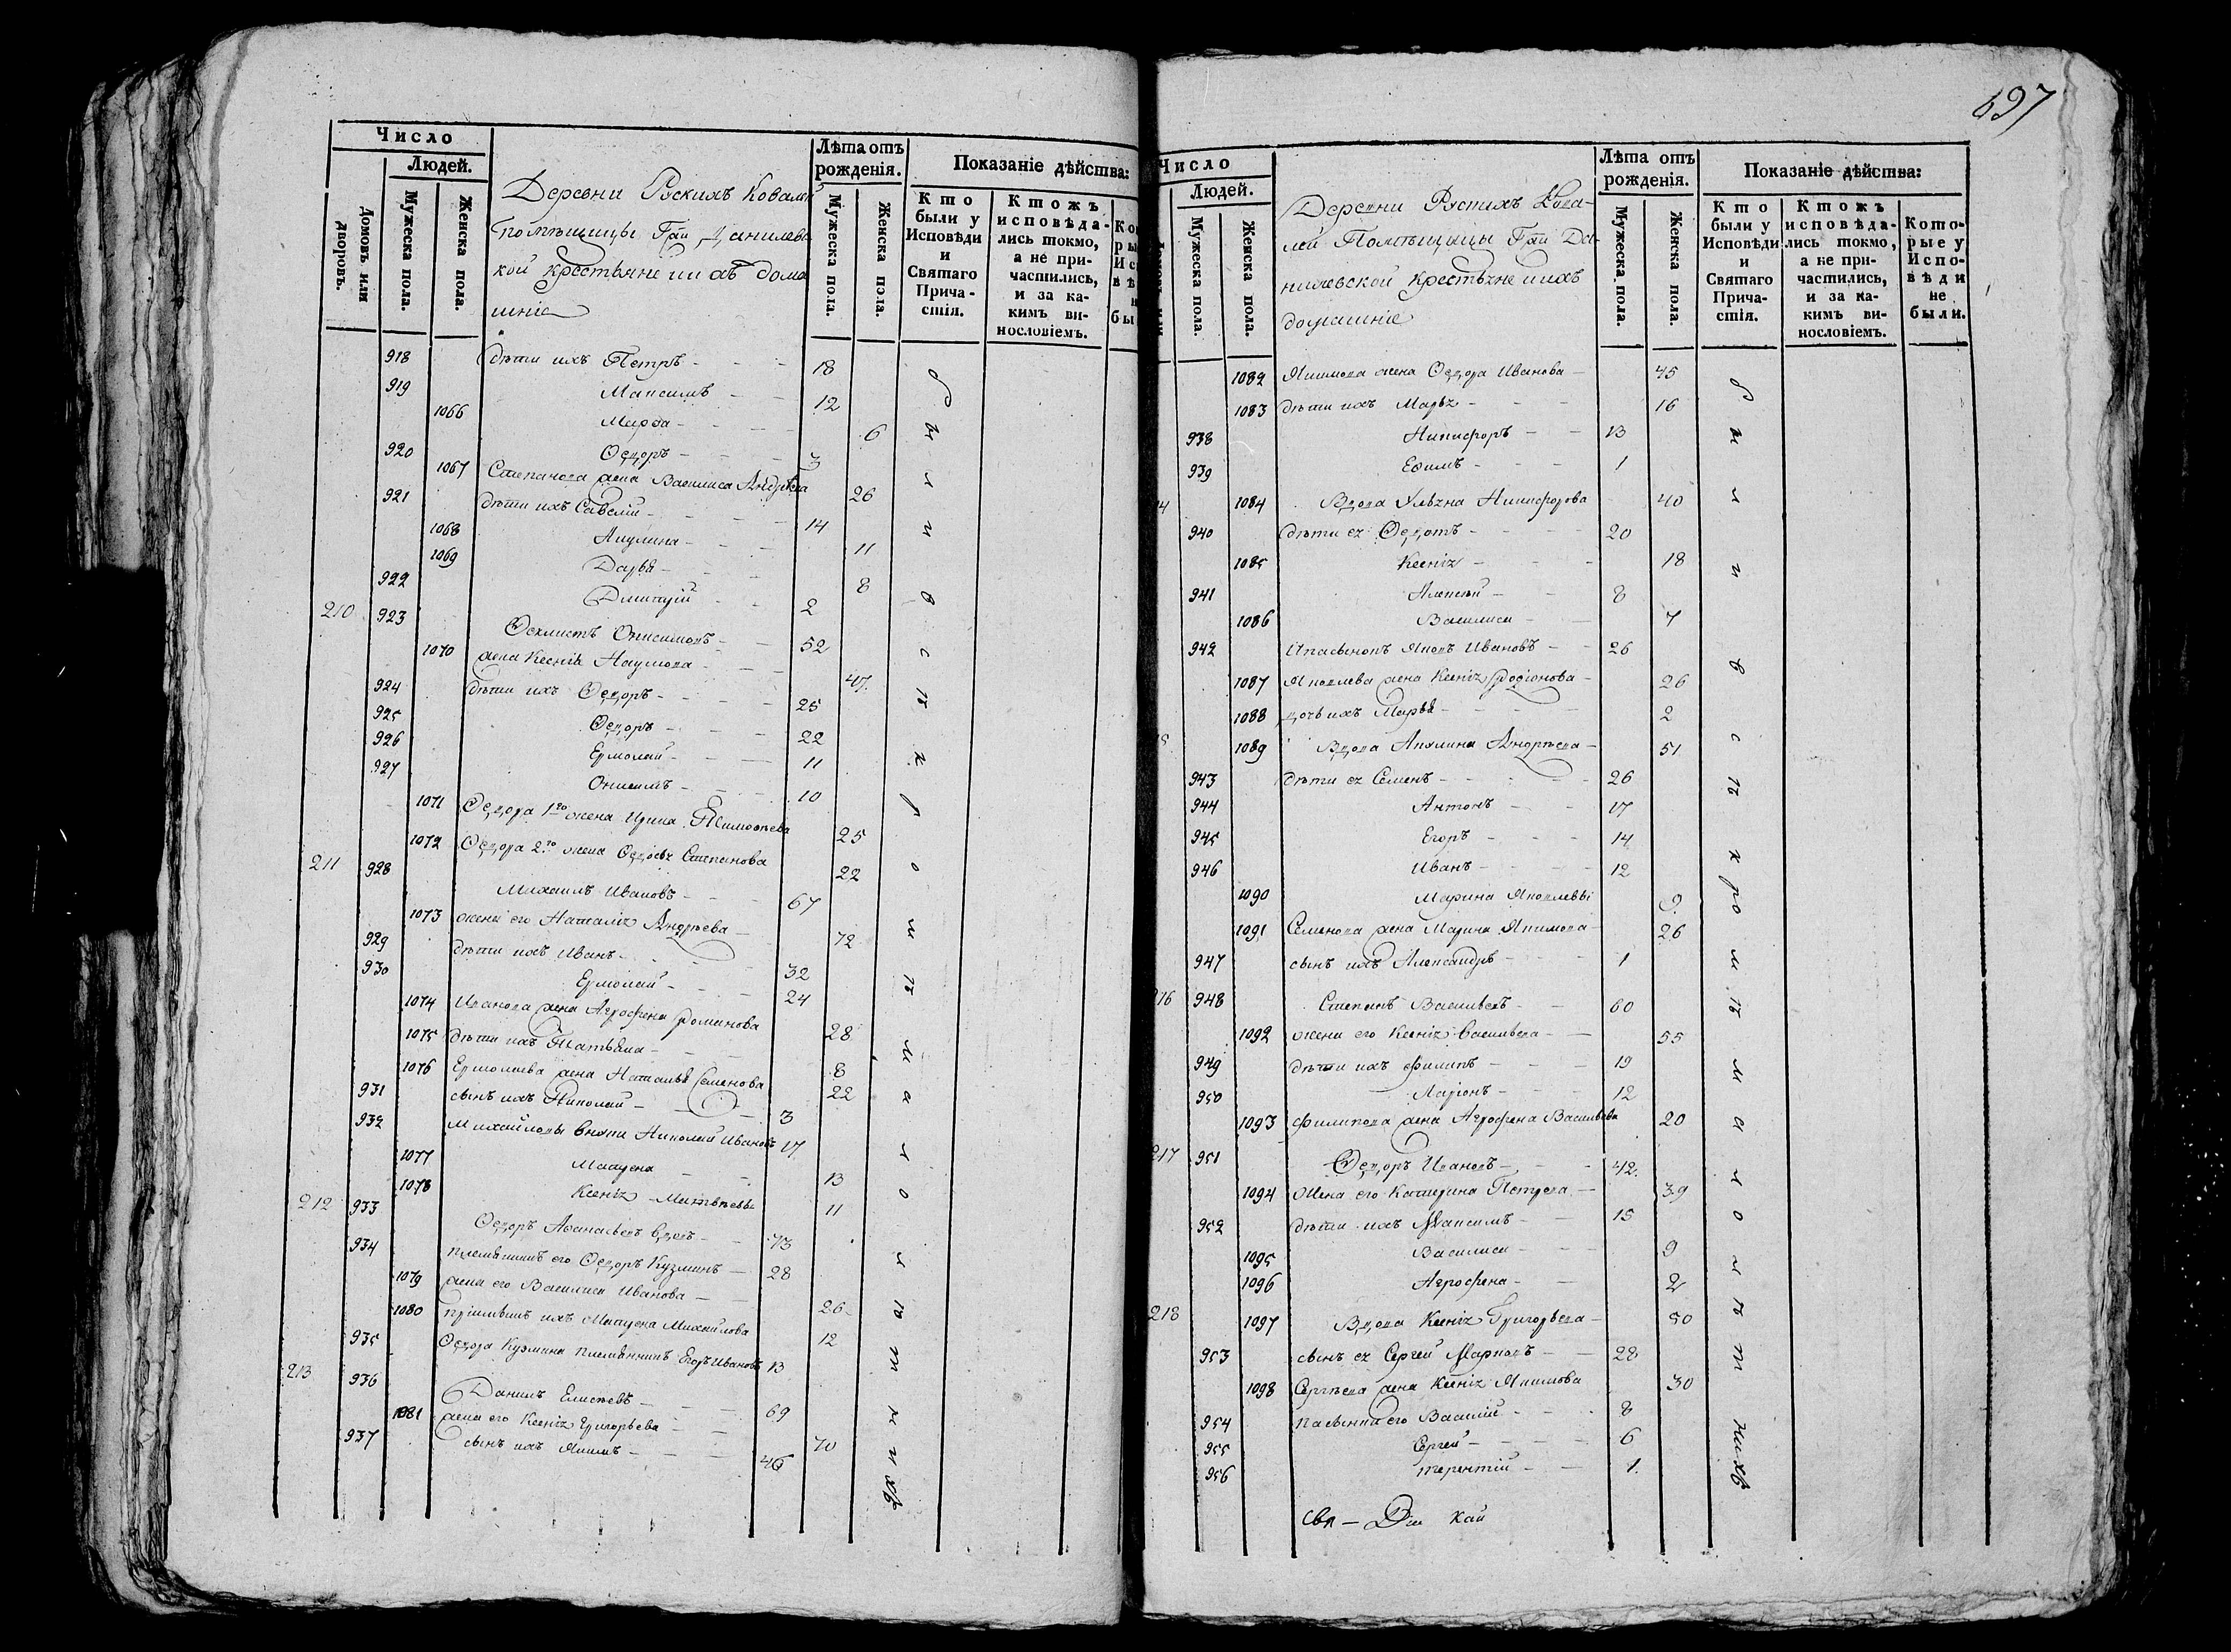 Число
Людей.
домовъ или дворовъ.
Мужеска пола.
Женска пола.
Деревни Рускихъ Ковалей
Помѣщицы Гжи Данилевс
кой крестьяне и ихъ дома
шніе
Лѣта отъ рожденія.
Мужеска пола.
Женска пола.
Показаніе дѣйства:
Кто были у Исповѣди и Святаго Причастія.
Ктожъ исповѣдались токмо, а не причастились, и за какимъ винословіемъ.
918 дѣти ихъ Петръ 18
919 Максимъ 12
1066 Марфа 6
920 Ѳедоръ 3
1067 Степанова жена Василиса Андрѣева 26
921 дѣти ихъ Савелій 14
1068 Акулина 11
1069 Дарья 8
922 Дмитрій 2
210 923 Ѳеклистъ Онисимовъ 52
1070 жена Ксенія Наумова 47
924 дѣти ихъ Ѳедоръ 25
925 Ѳедоръ 22
926 Ермолай 11
927 Онисимъ 10
1071 Ѳедора 1го жена Ирина Тимоѳеева 25
1072 Ѳедора 2го жена Ѳедосья Степанова 22
211 928 Михаилъ Ивановъ 67
1073 жена его Наталія Андреева 72
929 дѣти ихъ Иванъ 32
930 Ермолай 24
1074 Иванова жена Агрофена Романова 28
1075 дѣти ихъ Татьяна 8
1076 Ермолаева жена Наталья Семенова 22
931 сынъ ихъ Николай 3
932 Михайловы внуки Николай Ивановъ 17
1077 Матрена 13
1078 Ксенія 11
212 933 Ѳедоръ Аѳанасьевъ вдовъ 73
934 племянникъ его Ѳедоръ Кузминъ 28
1079 жена его Василиса Иванова 26
1080 Матрена Михайлова 12
935 Ѳедора Кузмина племянникъ Егоръ Ивановъ 13
213 936 Данилъ Елисѣевъ 69
1081 жена его Ксенія Григорьева 70
937 сынъ ихъ Якимъ 46
были в с ѣ к р о м ѣ м а л о л ѣ т н и хъ
697
Число
Людей.
Мужеска пола.
Женска пола.
Деревни Рускихъ Кова-
лей Помѣщицы Гжи Да-
нилевской крестьяне и ихъ
домашніе
Лѣта отъ рожденія.
Мужеска пола.
Женска пола.
Показаніе дѣйства:
Кто были у Исповѣди и Святаго Причастія.
Ктожъ исповѣдались токмо, а не причастились, и за какимъ винословіемъ.
Которые у Исповѣди не были.
1082 Якимова жена Ѳедора Иванова 45
1083 дѣти ихъ Марья 16
938 Никифоръ 13
939 Ефимъ 1
1084 Вдова Ульяна Никифорова 40
940 дѣти ея Ѳедотъ 20
1085 Ксенія 18
941 Алексѣй 8
1086 Василиса 7
942 Ипасынокъ Яковъ Ивановъ 26
1087 Яковлева жена Ксенія Родіонова 26
1088 дочь ихъ Марья 2
1089 Вдова Акулина Андреева 51
943 дѣти ея Семенъ 26
944 Антонъ 17
945 Егоръ 14
946 Иванъ 12
1090 Марина Яковлевы 9
1091 Семенова жена Марина Якимова 26
947 сынъ ихъ Александръ 1
216 948 Степанъ Васильевъ 60
1092 жена его Ксенія Васильева 55
949 дѣти ихъ Филипъ 19
950 Ларіонъ 12
1093 Филипова жена Агрофена Васильева 20
217 951 Ѳедоръ Ивановъ 42
1094 Жена его Катерина Петрова 39
952 дѣти ихъ Максимъ 15
1095 Василиса 9
1096 Агрофена 2
218 1097 Вдова Ксенія Григорьева 50
953 сынъ ея Сергей Марковъ 28
1098 Сергѣева жена Ксенія Якимова 30
954 пасынки его Василій 8
955 Сергей 6
956 Терентій 1
были в с ѣ к р о м ѣ м а л о л ѣ т нихъ